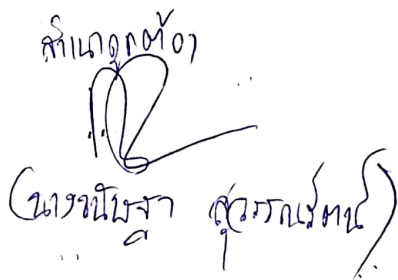 สำเนาถูกต้อง
(นางขนิษฐา สุวรรณรัตน์)